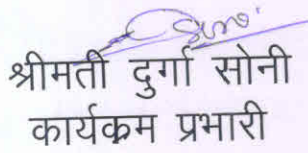 श्रीमती दुर्गा सोनी
कार्यक्रम प्रभारी